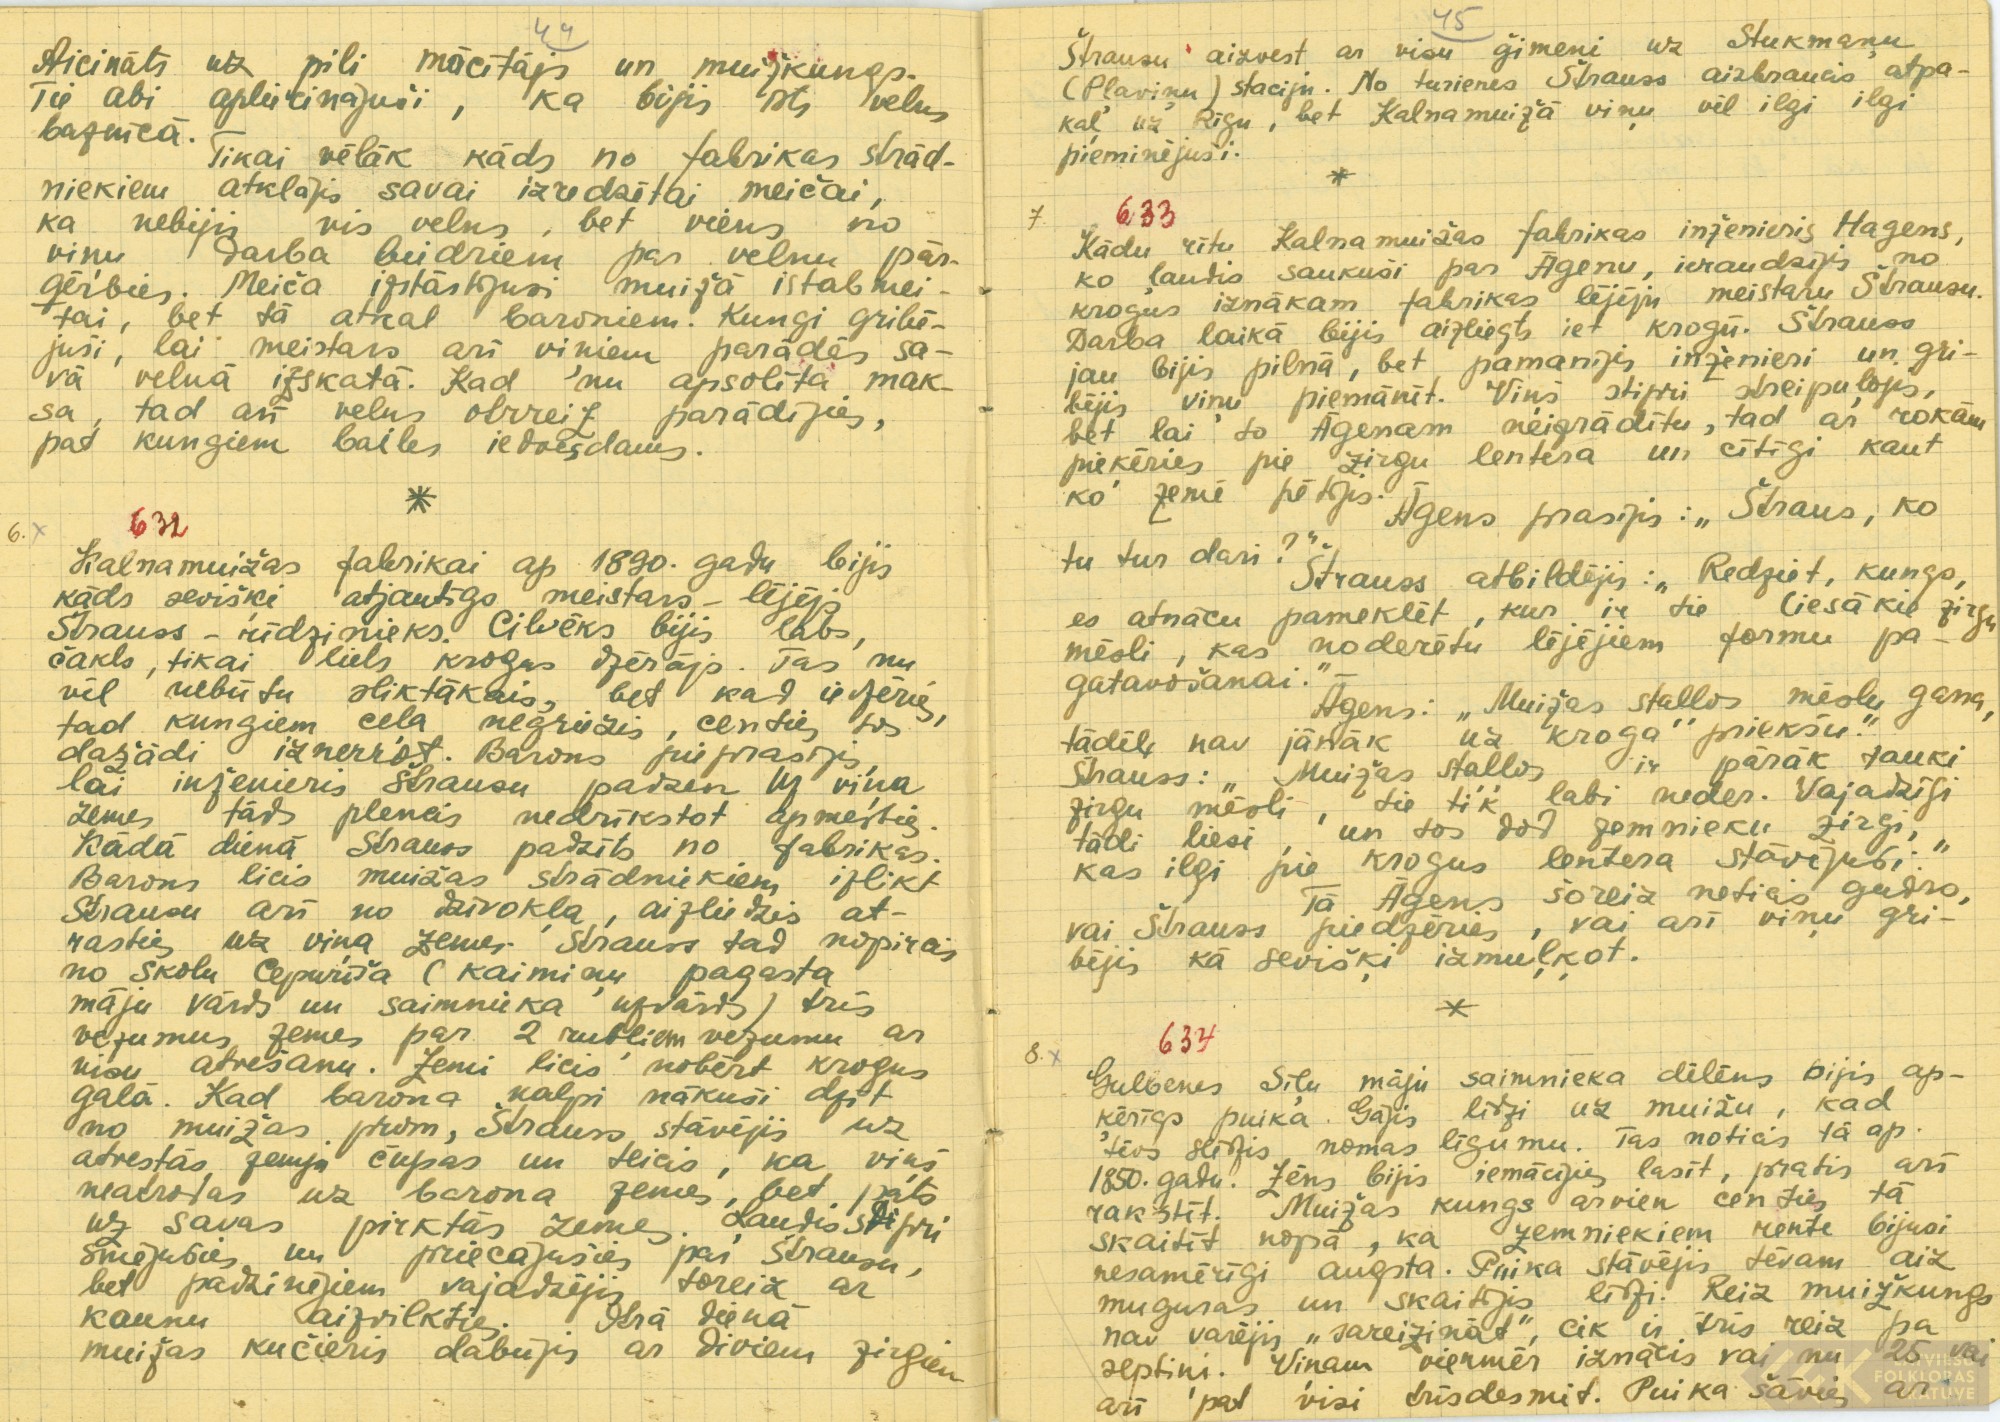 44
Aicināts uz pili mācītājs un muižkungs.
Tie abi apliecinājuši, ka bijis īsts velns
baznīcā.
Tikai vēlāk kāds no fabrikas strād-
niekiem atklājis savai izredzētai meičai,
ka nebijis vis velns, bet viens no
viņu darba biedriem par velnu pār-
ģērbies. Meiča izstāstījusi muižā istabmei-
tai, bet tā atkal baroniem. Kungi gribē-
juši, lai meistars arī viņiem parādās sa-
vā velnā izskatā. Kad nu apsolīta mak-
sa, tad arī velns otrreiz parādījies,
pat kungiem bailes iedvesdams.
*
6. x 632
Kalnamuižas fabrikai ap 1890. gadu bijis
kāds sevišķi atjautīgs meistars - lējējs
Štrauss - rīdzinieks. Cilvēks bijis labs,
čakls, tikai liels krogus dzērājs. Tas nu
vēl nebūtu sliktākais, bet kad iedzēris,
tad kungiem ceļa negriezis, centies tos
dažādi iznerrot. Barons pieprasījis,
lai inženieris Štrausu padzen. Uz viņa
zemes tāds plencis nedrīkstot apmesties.
Kādā dienā Štrauss padzīts no fabrikas.
Barons licis muižas strādniekiem izlikt
Štrausu arī no dzīvokļa, aizliedzis at-
rasties uz viņa zemes. Štrauss tad nopircis
no Skolu Cepurīša (kaimiņu pagasta
māju vārds un saimnieka uzvārds) trīs
vezumus zemes par 2 rubļiem vezumu ar
visu atvešanu. Zemi licis nobērt krogus
galā. Kad barona kalpi nākuši dzīt
no muižas prom, Štrauss stāvējis uz
atvestās zemju čupas un teicis, ka viņš
neatrodas uz barona zemes, bet pats
uz savas pirktās zemes. Ļaudis stipri
smējušies un priecājušies par Štrausu,
bet padzinējiem vajadzējis toreiz ar
kaunu aizvilkties. Otrā dienā
muižas kučieris dabūjis ar diviem zirgiem
45
Štrausu aizvest ar visu ģimeni uz Stukmaņu
(Pļaviņu) staciju. No turienes Štrauss aizbraucis atpa-
kaļ uz Rīgu, bet Kalnamuižā viņu vēl ilgi ilgi
pieminējuši.
*
7. 633
Kādu rītu Kalnamuižas fabrikas inženieris Hagens,
ko ļaudis saukuši par Āgenu, ieraudzījis no
krogus iznākam fabrikas lējēju meistaru Štrausu.
Darba laikā bijis aizliegts iet krogū. Štrauss
jau bijis pilnā, bet pamanījis inženieri un gri-
bējis viņu piemānīt. Viņš stipri streipuļojis,
bet lai to Āgenam neizrādītu, tad ar rokām
pieķēries pie zirgu lentera un cītīgi kaut
ko zemē pētījis.
Āgens prasījis: „Štraus, ko
tu tur dari?"
Štrauss atbildējis: „Redziet, kungs,
es atnācu pameklēt, kur ir tie liesākie zirgu
mēsli, kas noderētu lējējiem formu pa-
gatavošanai." -
Āgens: „Muižas stallos mēslu gana,
tādēļ nav jānāk uz kroga priekšu."
Štrauss: „Muižas stallos ir pārāk tauki
zirgu mēsli, tie tik labi neder. Vajadzīgi
tādi liesi, un tos dod zemnieku zirgi,
kas ilgi pie krogus lentera stāvējuši."
Tā Āgens šoreiz neticis gudrs,
vai Štrauss piedzēries, vai arī viņu gri-
bējis kā sevišķi izmuļķot.
*
8. x 634
Gulbenes Siļu māju saimnieka dēlēns bijis ap-
ķērīgs puika. Gājis līdzi uz muižu, kad
tēvs slēdzis nomas līgumu. Tas noticis tā ap.
1850. gadu. Zēns bijis iemācījies lasīt, pratis arī
rakstīt. Muižas kungs arvien centies tā
skaitīt nopā, ka zemniekiem rente bijusi
nesamērīgi augsta. Puika stāvējis tēvam aiz
muguras un skaitījis līdzi. Reiz muižkungs
nav varējis „sareizināt", cik ir trīs reiz pa
septiņi. Viņam vienmēr iznācis vai nu 25 vai
arī pat visi trīsdesmit. Puika šāvies ar
LATVIEŠU
FOLKLORAS
KRĀTUVE